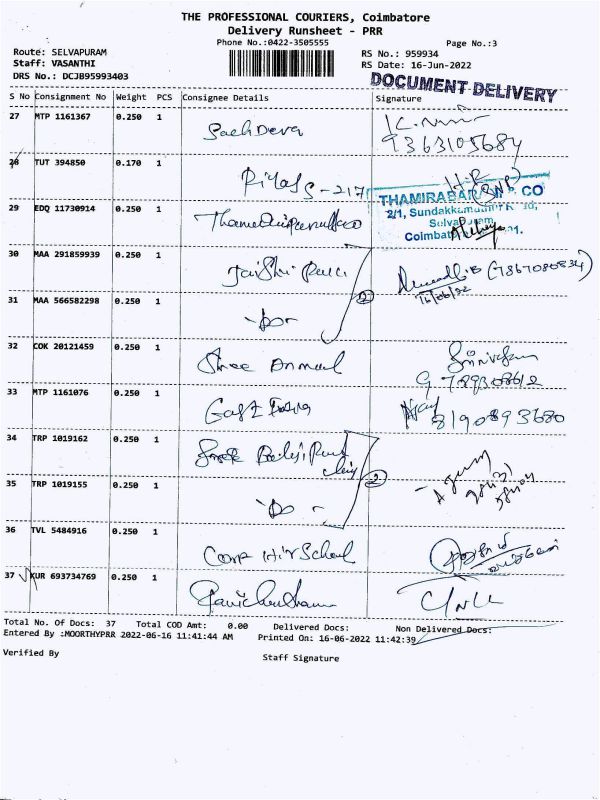 THE PROFESSIONAL COURIERS, Coimbatore
Delivery Runsheet - PRR
Phone No.:0422-3505555
Page No.:3
Route: SELVAPURAM
RS No.: 959934
Staff: VASANTHI
RS Date: 16-Jun-2022
DRS No.: DCJB95993403
DOCUMENT DELIVERY
S No Consignment No Weight PCS Consignee Details Signature
27 MTP 1161367 0.250 1 Sachdeva
9363105684
28 TUT 394850 0.170 1
THAMIRABA CO
29 EDQ 11730914 0.250 1
2/1, Sundakkamuthur
Selvapuram,
Coimbat
30 MAA 291859939 0.250 1 Jaishri (7867080834)
16/06/22
31 MAA 566582298 0.250 1 -Do-
32 COK 20121459 0.250 1 Shree Anmaul
33 MTP 1161076 0.250 1 8190893680
34 TRP 1019162 0.250 1 Sree Balaji
35 TRP 1019155 0.250 1 -Do-
36 TVL 5484916 0.250 1 Corp Hir School
37 KUR 693734769 0.250 1
Total No. Of Docs: 37 Total COD Amt: 0.00 Delivered Docs: Non Delivered Docs:
Entered By :MOORTHYPRR 2022-06-16 11:41:44 AM Printed On: 16-06-2022 11:42:39
Verified By
Staff Signature